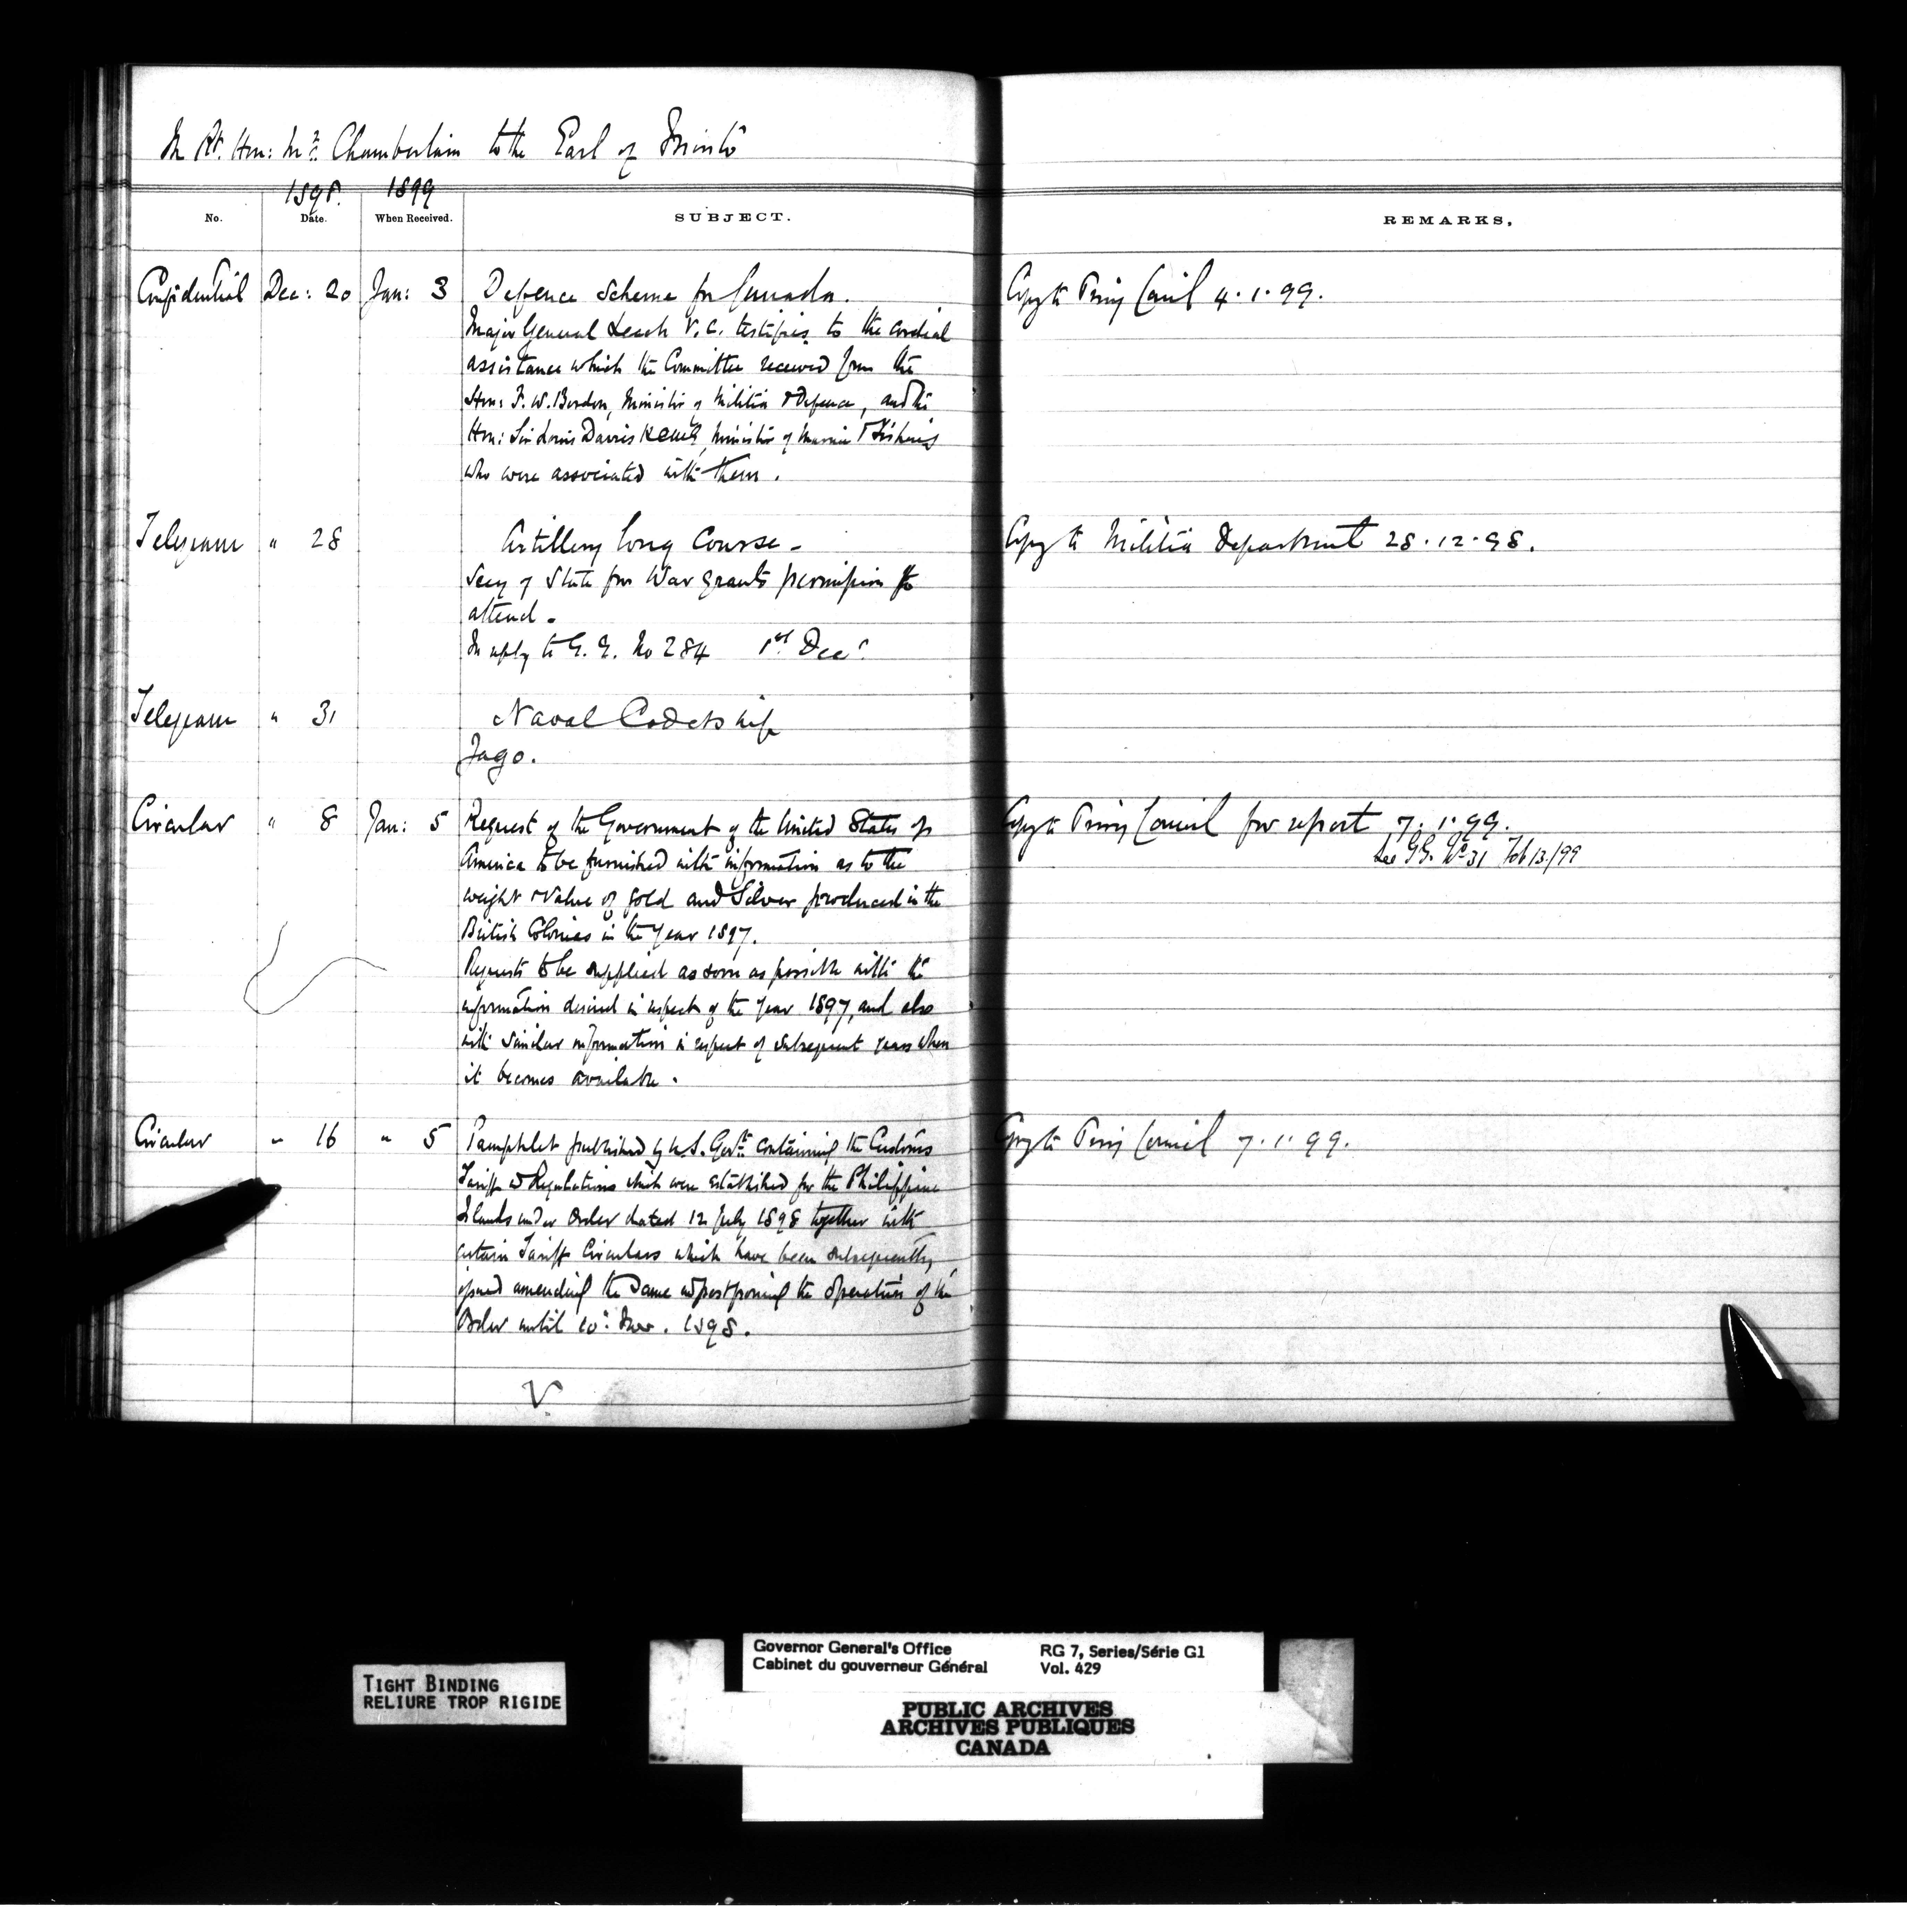 The Rt. Hon: Mr. Chamberlain to the Earl of Minto
1898. 1899
No. Date. When Received. SUBJECT. REMARKS.
Confidential Dec: 20 Jan: 3 Defence Scheme for Canada. Copy to Privy Council 4.1.99.
Major General Leach V.C. testifies to the cordial
assistance which the Committee received from the
Hon: F. W. Borden, Minister of Militia & Defence, and the
Hon: Sir Louis Davies KCMG, Minister of Marine & Fisheries
who were associated with them.
Telegram " 28 Artillery Long Course - Copy to Militia Department 28.12.98.
Secy of State for War grants permission to
attend.
In reply to G.G. No 284 1st Decr
Telegram " 31 Naval Cadetship
Jago.
Circular " 8 Jan: 5 Request of the Government of the United States of Copy to Privy Council for report 7.1.99.
America to be furnished with information as to the See GG. No 31 Feb 13/99
weight & value of gold and Silver produced in the
British Colonies in the year 1897.
Requests to be supplied as soon as possible with the
information desired in respect of the year 1897, and also
with similar information in respect of subsequent years when
it becomes available.
Circular " 16 " 5 Pamphlet published by U.S. Govt. containing the Customs Copy to Privy Council 7.1.99.
Tariff & Regulations which were established for the Philippine
Islands under Order dated 12 July 1898 together with
certain Tariff Circulars which have been subsequently
issued amending the same & postponing the operation of the
Order until 10: Nov. 1898.
TIGHT BINDING
RELIURE TROP RIGIDE
Governor General's Office RG 7, Series/Série G1
Cabinet du gouverneur Général Vol. 429
PUBLIC ARCHIVES
ARCHIVES PUBLIQUES
CANADA